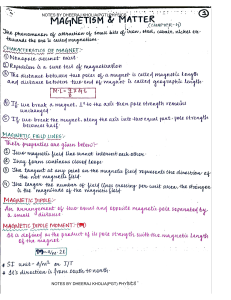 NOTES BY DHEERAJ KHOLIA(PGT) PHYSICS
MAGNETISM & MATTER
(CHAPTER-5)
The phenomenon of attraction of small bits of iron, steel, cobalt, nickel etc
towards the ore is called magnetism.
CHARACTERISTICS OF MAGNET:-
① Monopole doesnot exist.
② Repulsion is a sure test of magnetisation
③ The distance between two poles of a magnet is called magnetic length
and distance between two end of magnet is called geographic length.
④ If we break a magnet, then pole strength remains
unchanged
⑤ If we break the magnet along the axis into two equal part, pole strength
becomes half
MAGNETIC FIELD LINES:-
Their properties are given below:-
① Two magnetic field line never intersect each other.
② They form continuous closed loops
③ The tangent at any point on the magnetic field represents the direction of
the net magnetic field.
④ The larger the number of field lines crossing per unit area, the stronger
is the magnitude of the magnetic field
MAGNETIC DIPOLE:-
An arrangement of two equal and opposite magnetic pole separated by
a small distance
MAGNETIC DIPOLE MOMENT:-
It is defined as the product of its pole strength with the magnetic length
of the magnet
SI unit - A/m² or J/T
It's direction is from south to north
NOTES BY DHEERAJ KHOLIA(PGT) PHYSICS